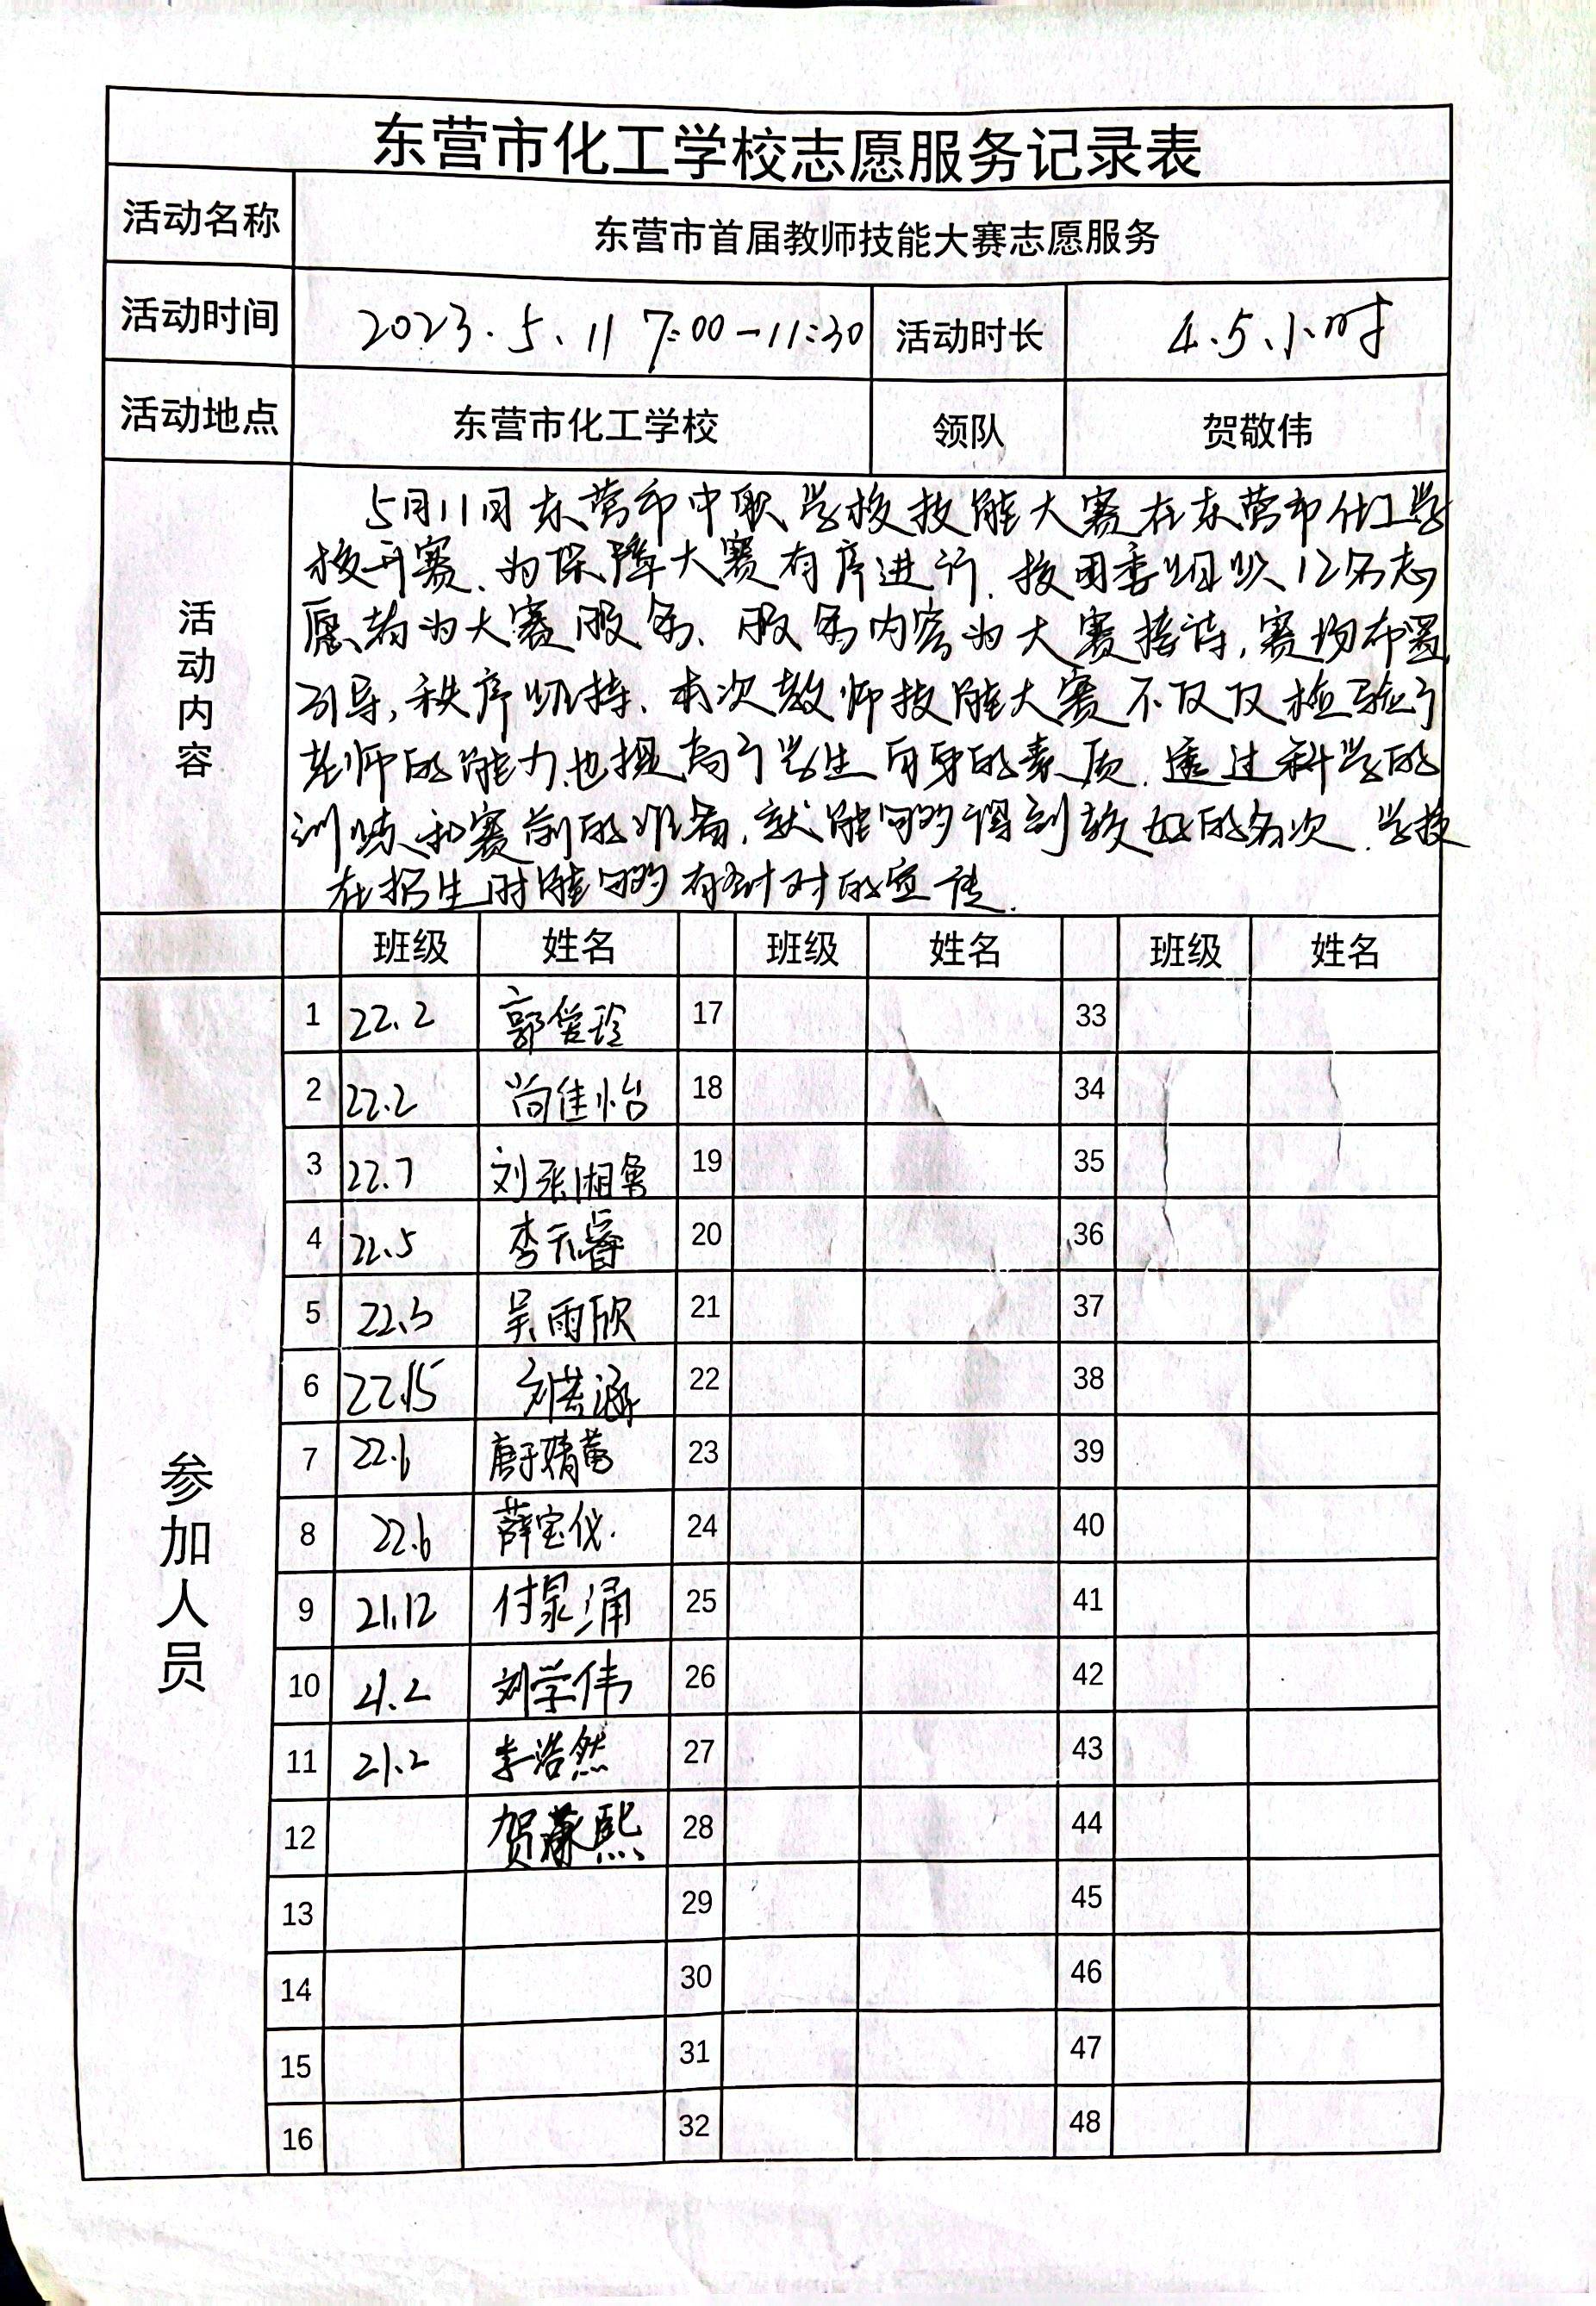 东营市化工学校志愿服务记录表
活动名称 东营市首届教师技能大赛志愿服务
活动时间 2023.5.11 7:00-11:30 活动时长 4.5小时
活动地点 东营市化工学校 领队 贺敬伟
活动内容
5月11日东营市中职学校技能大赛在东营市化工学
校开赛、为保障大赛有序进行.校团委组织12名志
愿者为大赛服务、服务内容为大赛接待,赛场布置,
引导,秩序维持、本次教师技能大赛不仅仅检验了
老师的能力也提高了学生自身的素质.透过科学的
训练和赛前的准备,就能够得到较好的名次.学校
在招生时能够有针对的宣传.
班级 姓名 班级 姓名 班级 姓名
参加人员
1 22.2 郭爱玲 17 33
2 22.2 尚佳怡 18 34
3 22.7 刘张湘鲁 19 35
4 22.5 李元睿 20 36
5 22.5 吴雨欣 21 37
6 22.15 刘芸涵 22 38
7 22.6 唐于婧 23 39
8 22.6 薛宝仪. 24 40
9 21.12 付泉涌 25 41
10 21.2 刘学伟 26 42
11 21.2 李浩然 27 43
12 贺熙 28 44
13 29 45
14 30 46
15 31 47
16 32 48